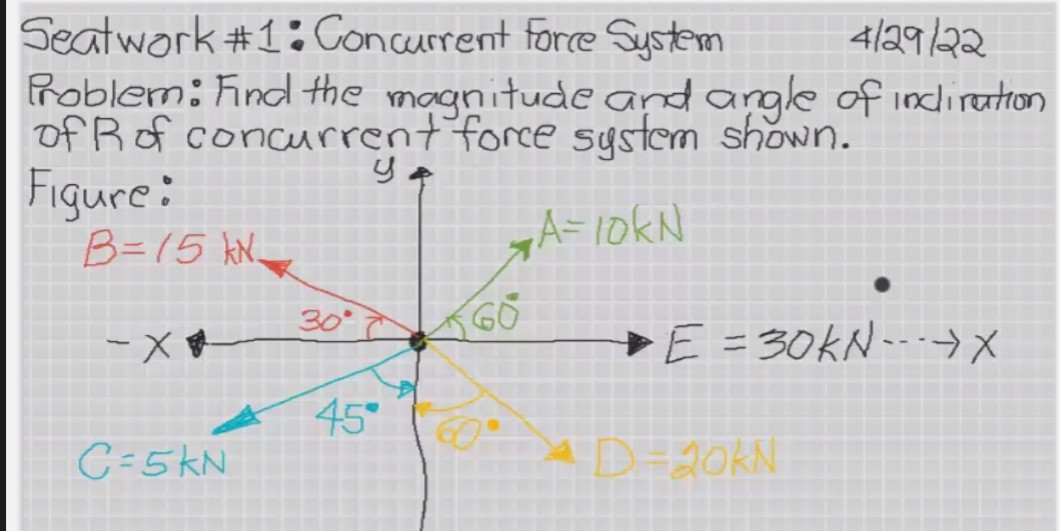 Seatwork #1: Concurrent Force System 4/29/22
Problem: Find the magnitude and angle of inclination
of R of concurrent force system shown.
Figure:
y
A=10kN
B=15 kN
30°
60°
-X
E = 30kN ---→ X
45°
60°
C=5kN
D=20kN